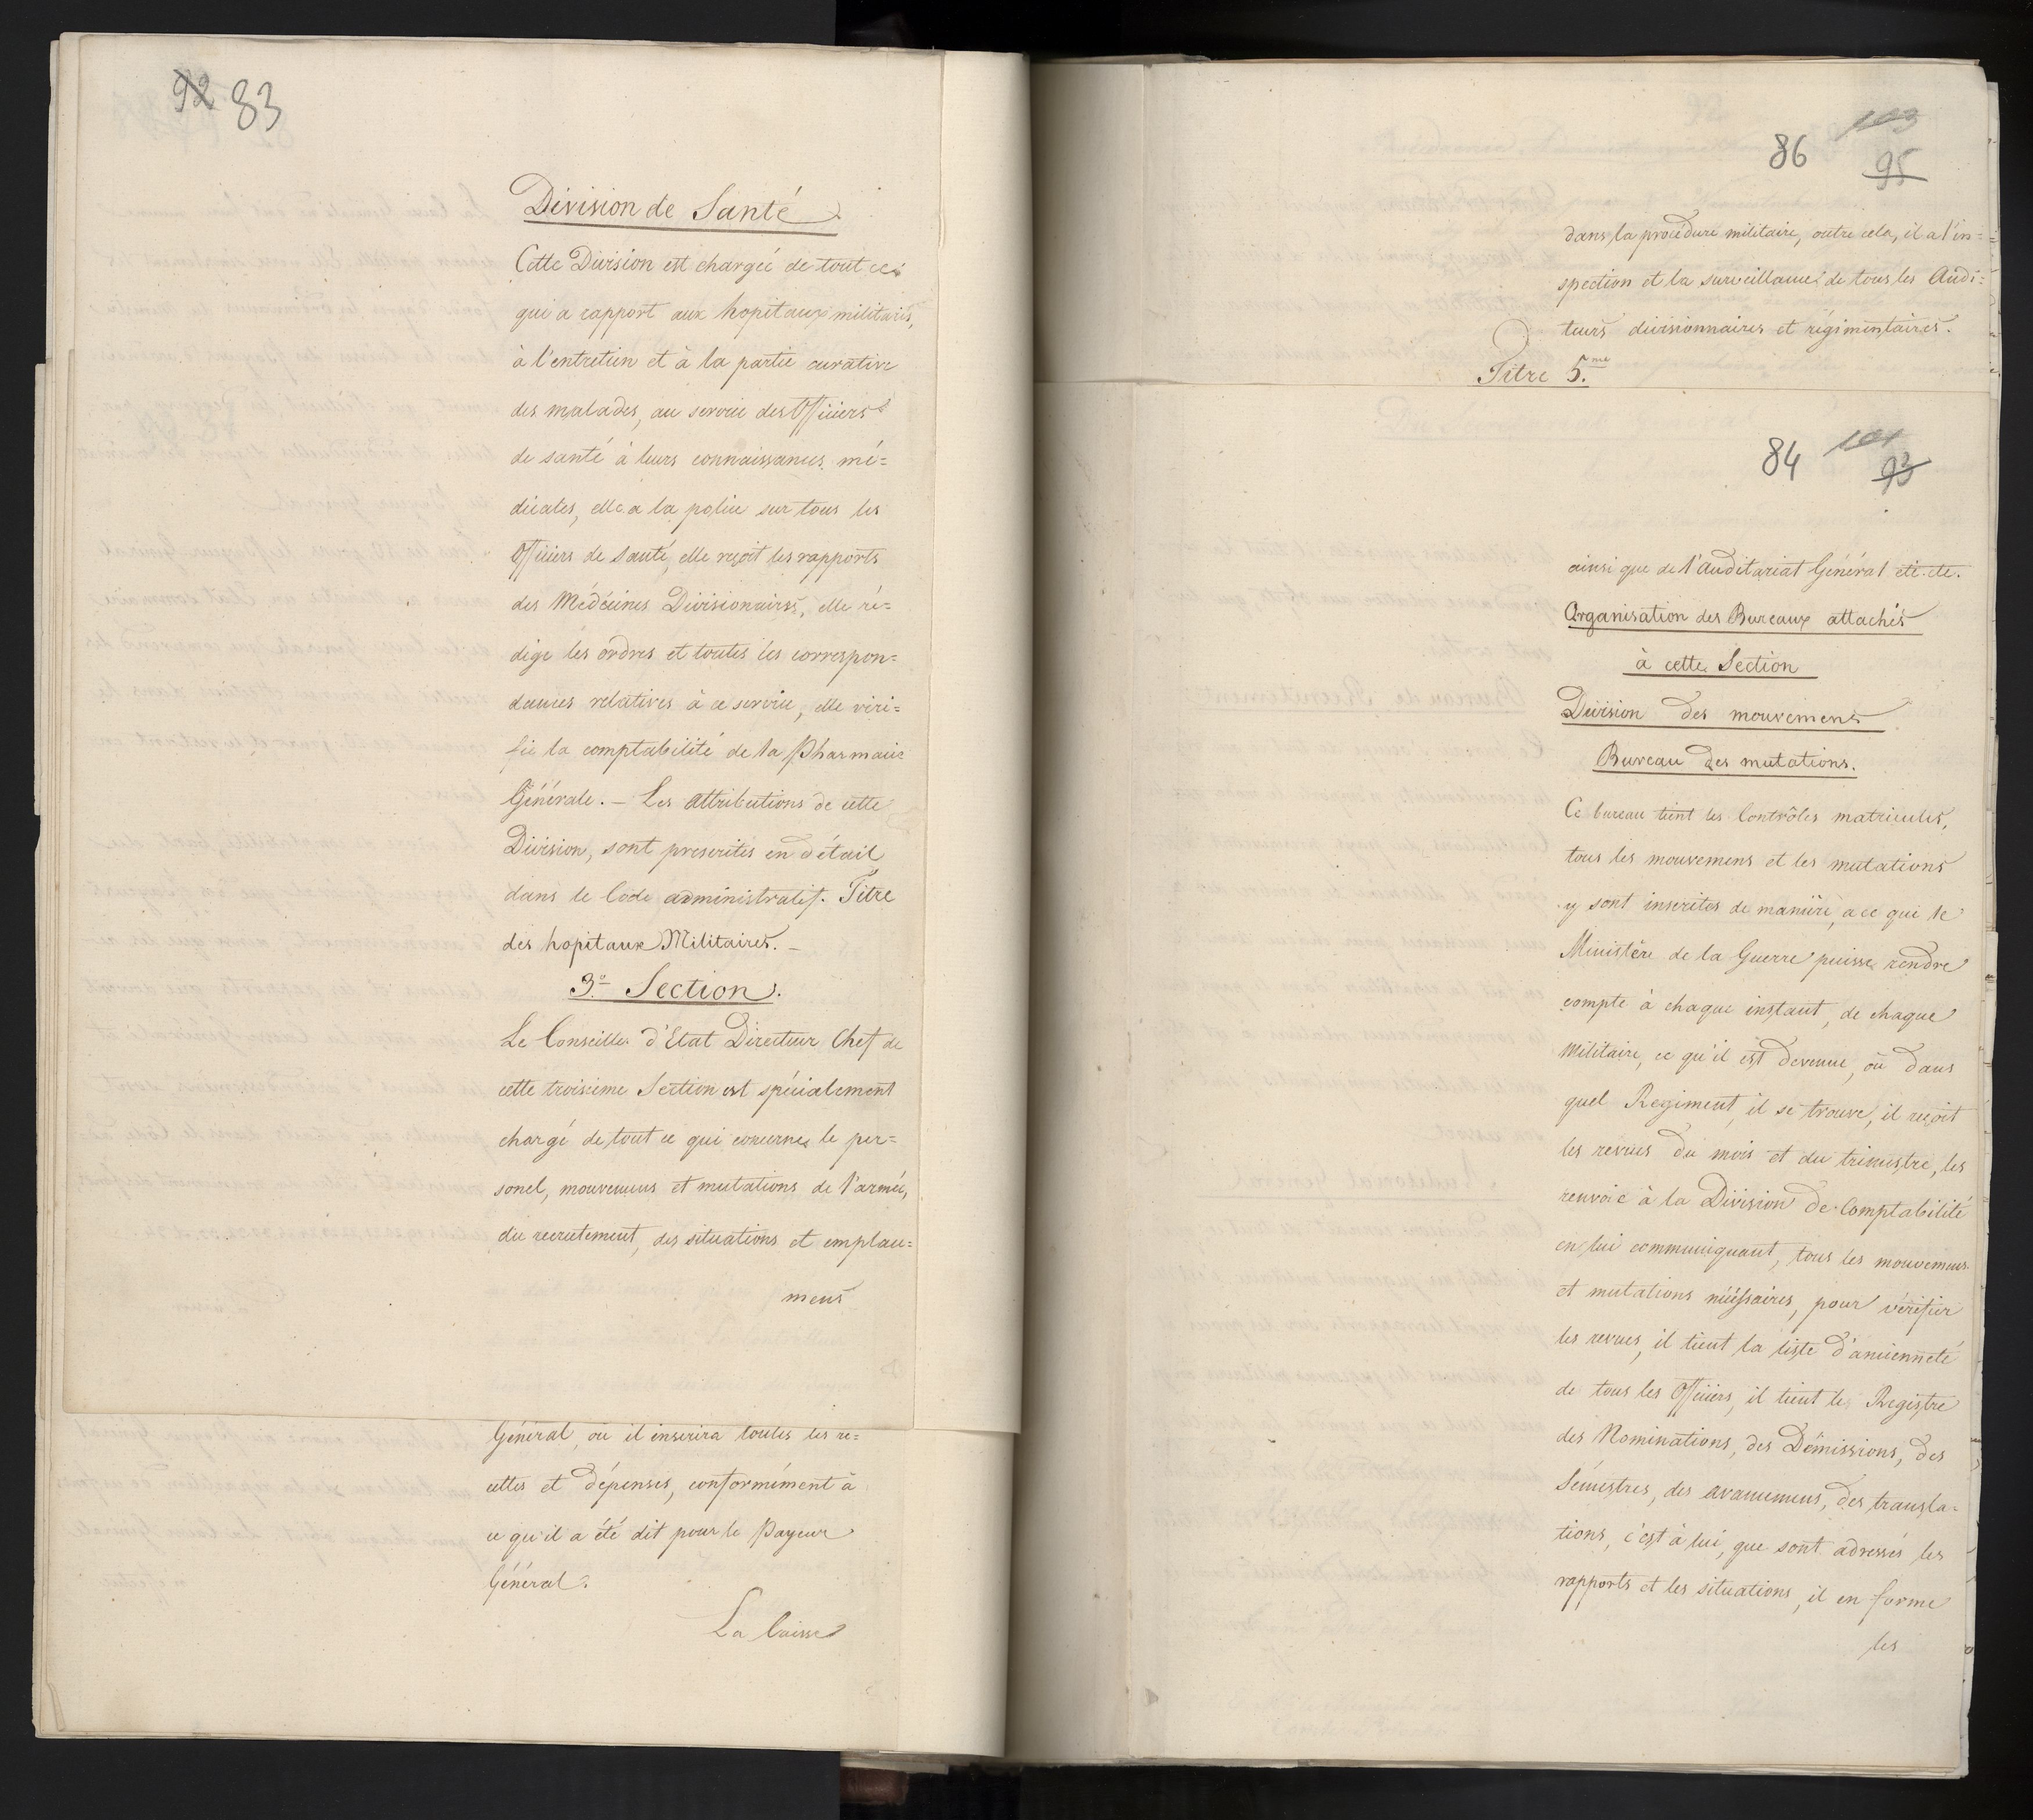 92 83
Division de Santé
Cette Division est chargée de tout ce
qui a rapport aux hopitaux militaires,
à l'entretien et à la partie curative
des malades, au service des Officiers
de santé à leurs connaissances mé=
dicales, elle a la police sur tous les
Officiers de Santé, elle reçoit les rapports
des Médécines Divisionaires, elle ré=
dige les ordres et toutes les correspon=
dances relatives à ce service, elle véri=
fie la comptabilité de la Pharmacie
Générale. – Les attributions de cette
Division, sont prescrites en détail
dans le Code administratif. Titre
des hopitaux Militaires. –
3e Section.
Le Conseiller d'Etat Directeur Chef de
cette troisième Section est spécialement
chargé de tout ce qui concerne le per=
sonel, mouvemens et mutations de l'armée,
du recrutement, des situations et emplace=
mens
Général, où il inserira toutes les re=
cettes et dépenses, conformément à
ce qu'il a été dit pour le Payeur
Général.
La Caisse
103
86 95
dans la procédure militaire, outre cela, il a l'in=
spection et la surveillance de tous les Audi=
teurs divisionnaires et régimentaires.
Titre 5.me
101
84 93
ainsi que de l'Auditariat Général etc. etc.
Organisation des Bureaux attachés
à cette Section
Division des mouvemens
Bureau des mutations.
Ce bureau tient les Contrôles matricules,
tous les mouvemens et les mutations
y sont inscrites de manière, a ce qui le
Ministère de la Guerre puisse rendre
compte à chaque instant, de chaque
Militaire, ce qu'il est devenue, où dans
quel Regiment, il se trouve, il reçoit
les revues du mois et du trimestre, les
renvoie à la Division de Comptabilité
en lui communiquant, tous les mouvemens
et mutations nécéssaires, pour vérifier
les revues, il tient la liste d'ancienneté
de tous les Officiers, il tient le Registre
des Nominations, des Démissions, des
Sémestres, des avancemens, des transla=
tions, c'est à lui, que sont adressés les
rapports et les situations, il en forme
les